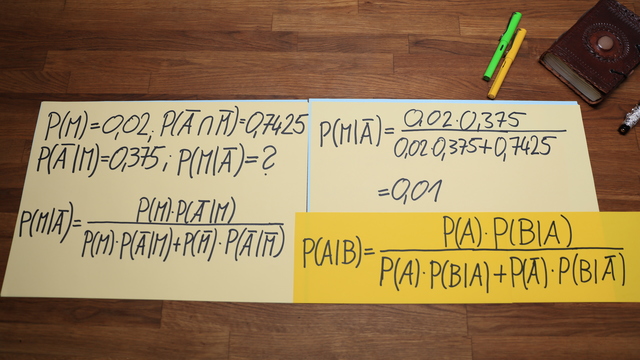 P(M)=0,02, P(A̅∩M̅)=0,7425
P(A̅|M)=0,375; P(M|A̅)=?
P(M|A̅)= P(M)·P(A̅|M) / P(M)·P(A̅|M)+P(M̅)·P(A̅|M̅)
P(M|A̅)= 0,02·0,375 / 0,02·0,375+0,7425
=0,01
P(A|B)= P(A)·P(B|A) / P(A)·P(B|A)+P(A̅)·P(B|A̅)